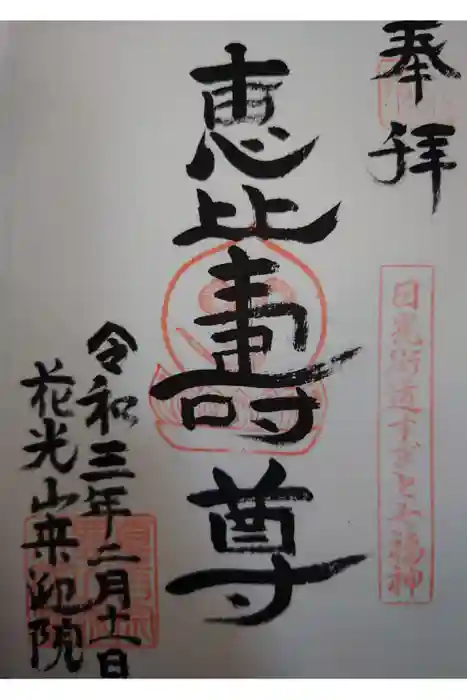 奉拝
日光街道すぎと七福神
恵比壽尊
令和三年二月十一日
花光山来迎院